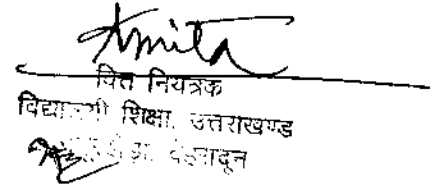 Amita
वित्त नियंत्रक
शिक्षा, उत्तराखण्ड
देहरादून